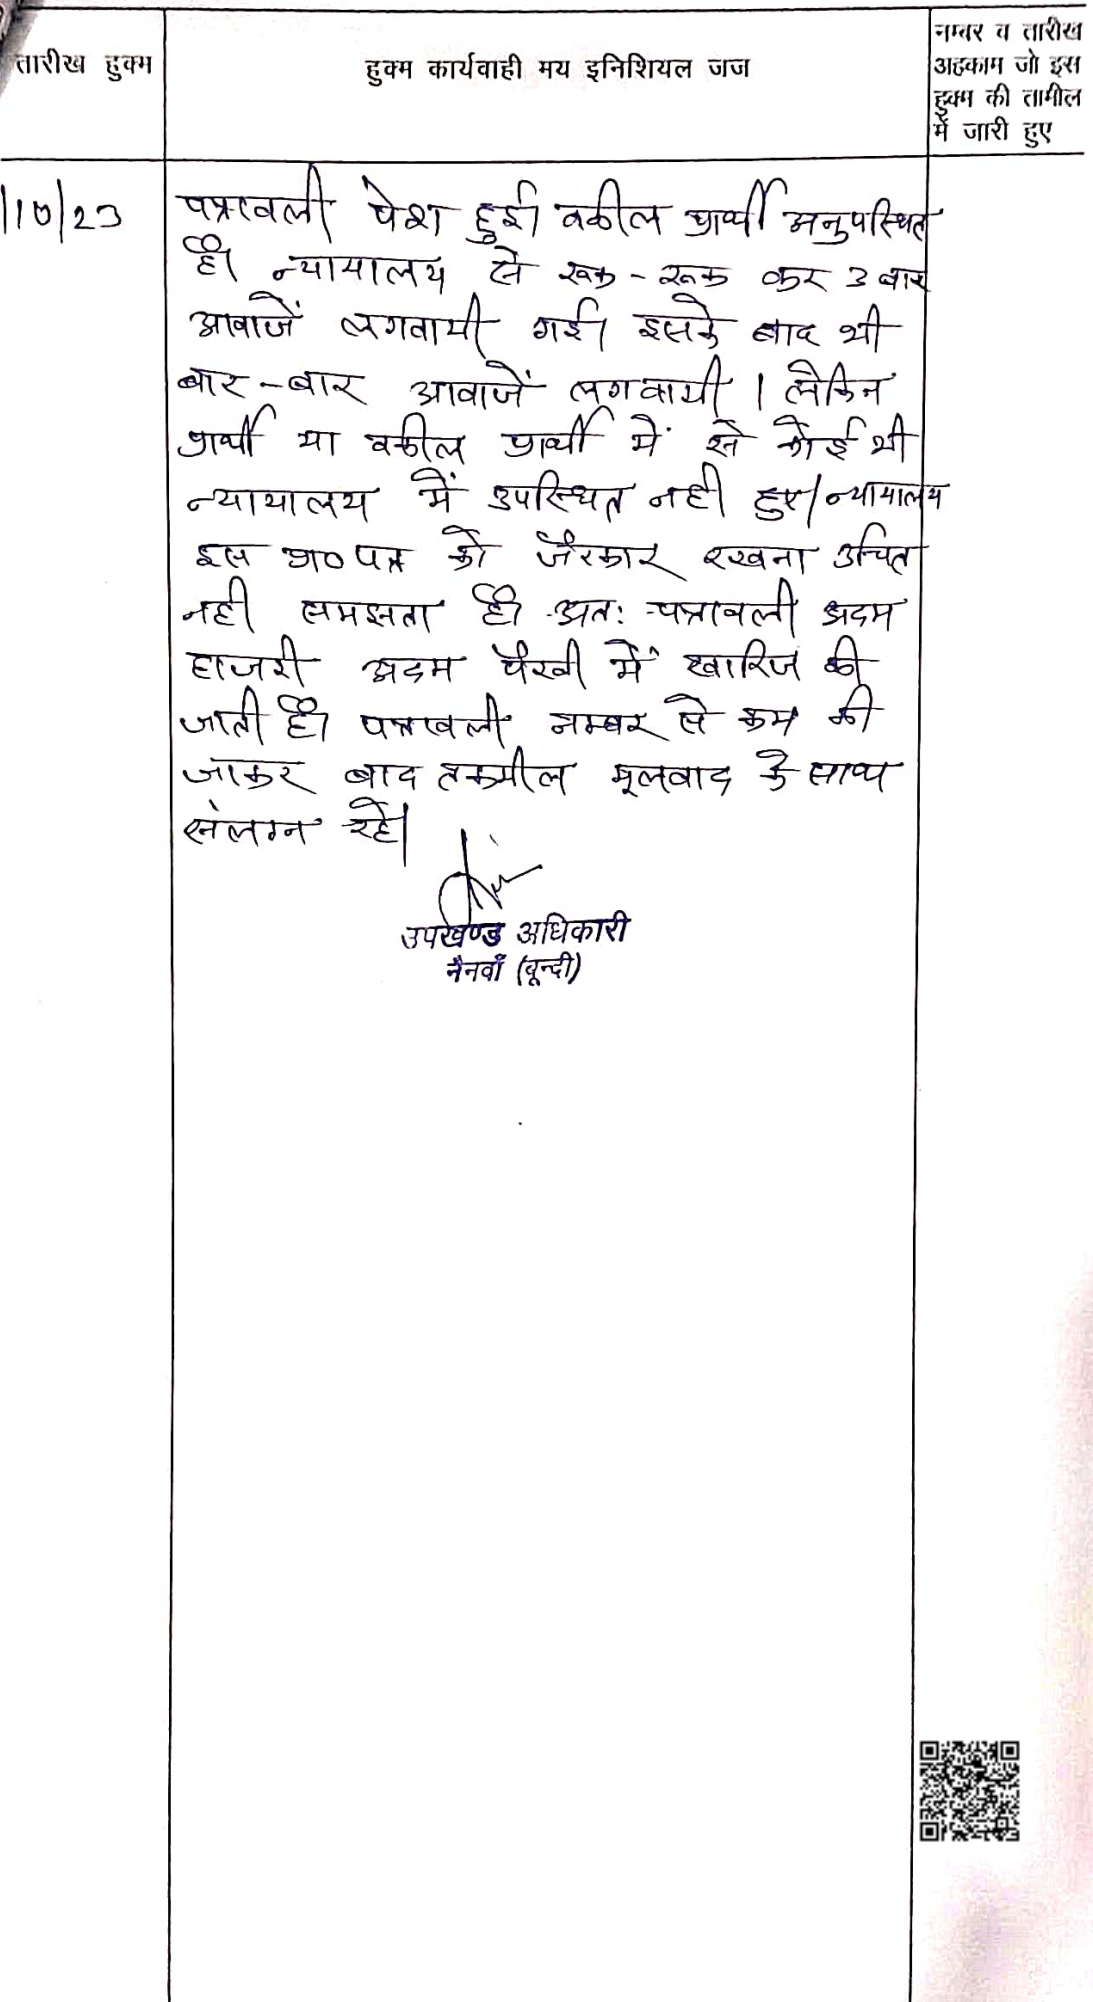 तारीख हुक्म
हुक्म कार्यवाही मय इनिशियल जज
नम्बर व तारीख
अहकाम जो इस
हुक्म की तामील
में जारी हुए
/10/23
पत्रावली पेश हुई। वकील प्रार्थी अनुपस्थित
है। न्यायालय से रूक-रूक कर 3 बार
आवाजें लगवायी गई। इसके बाद भी
बार-बार आवाजें लगवायी। लेकिन
प्रार्थी या वकील प्रार्थी में से कोई भी
न्यायालय में उपस्थित नही हुए। न्यायालय
इस प्रा0 पत्र को जैरकार रखना उचित
नही समझता है। अत: पत्रावली अदम
हाजरी अदम पैरवी में खारिज की
जाती है। पत्रावली नम्बर से कम की
जाकर बाद तकमील मूलवाद के साथ
संलग्न रहे।
उपखण्ड अधिकारी
नैनवाँ (बून्दी)